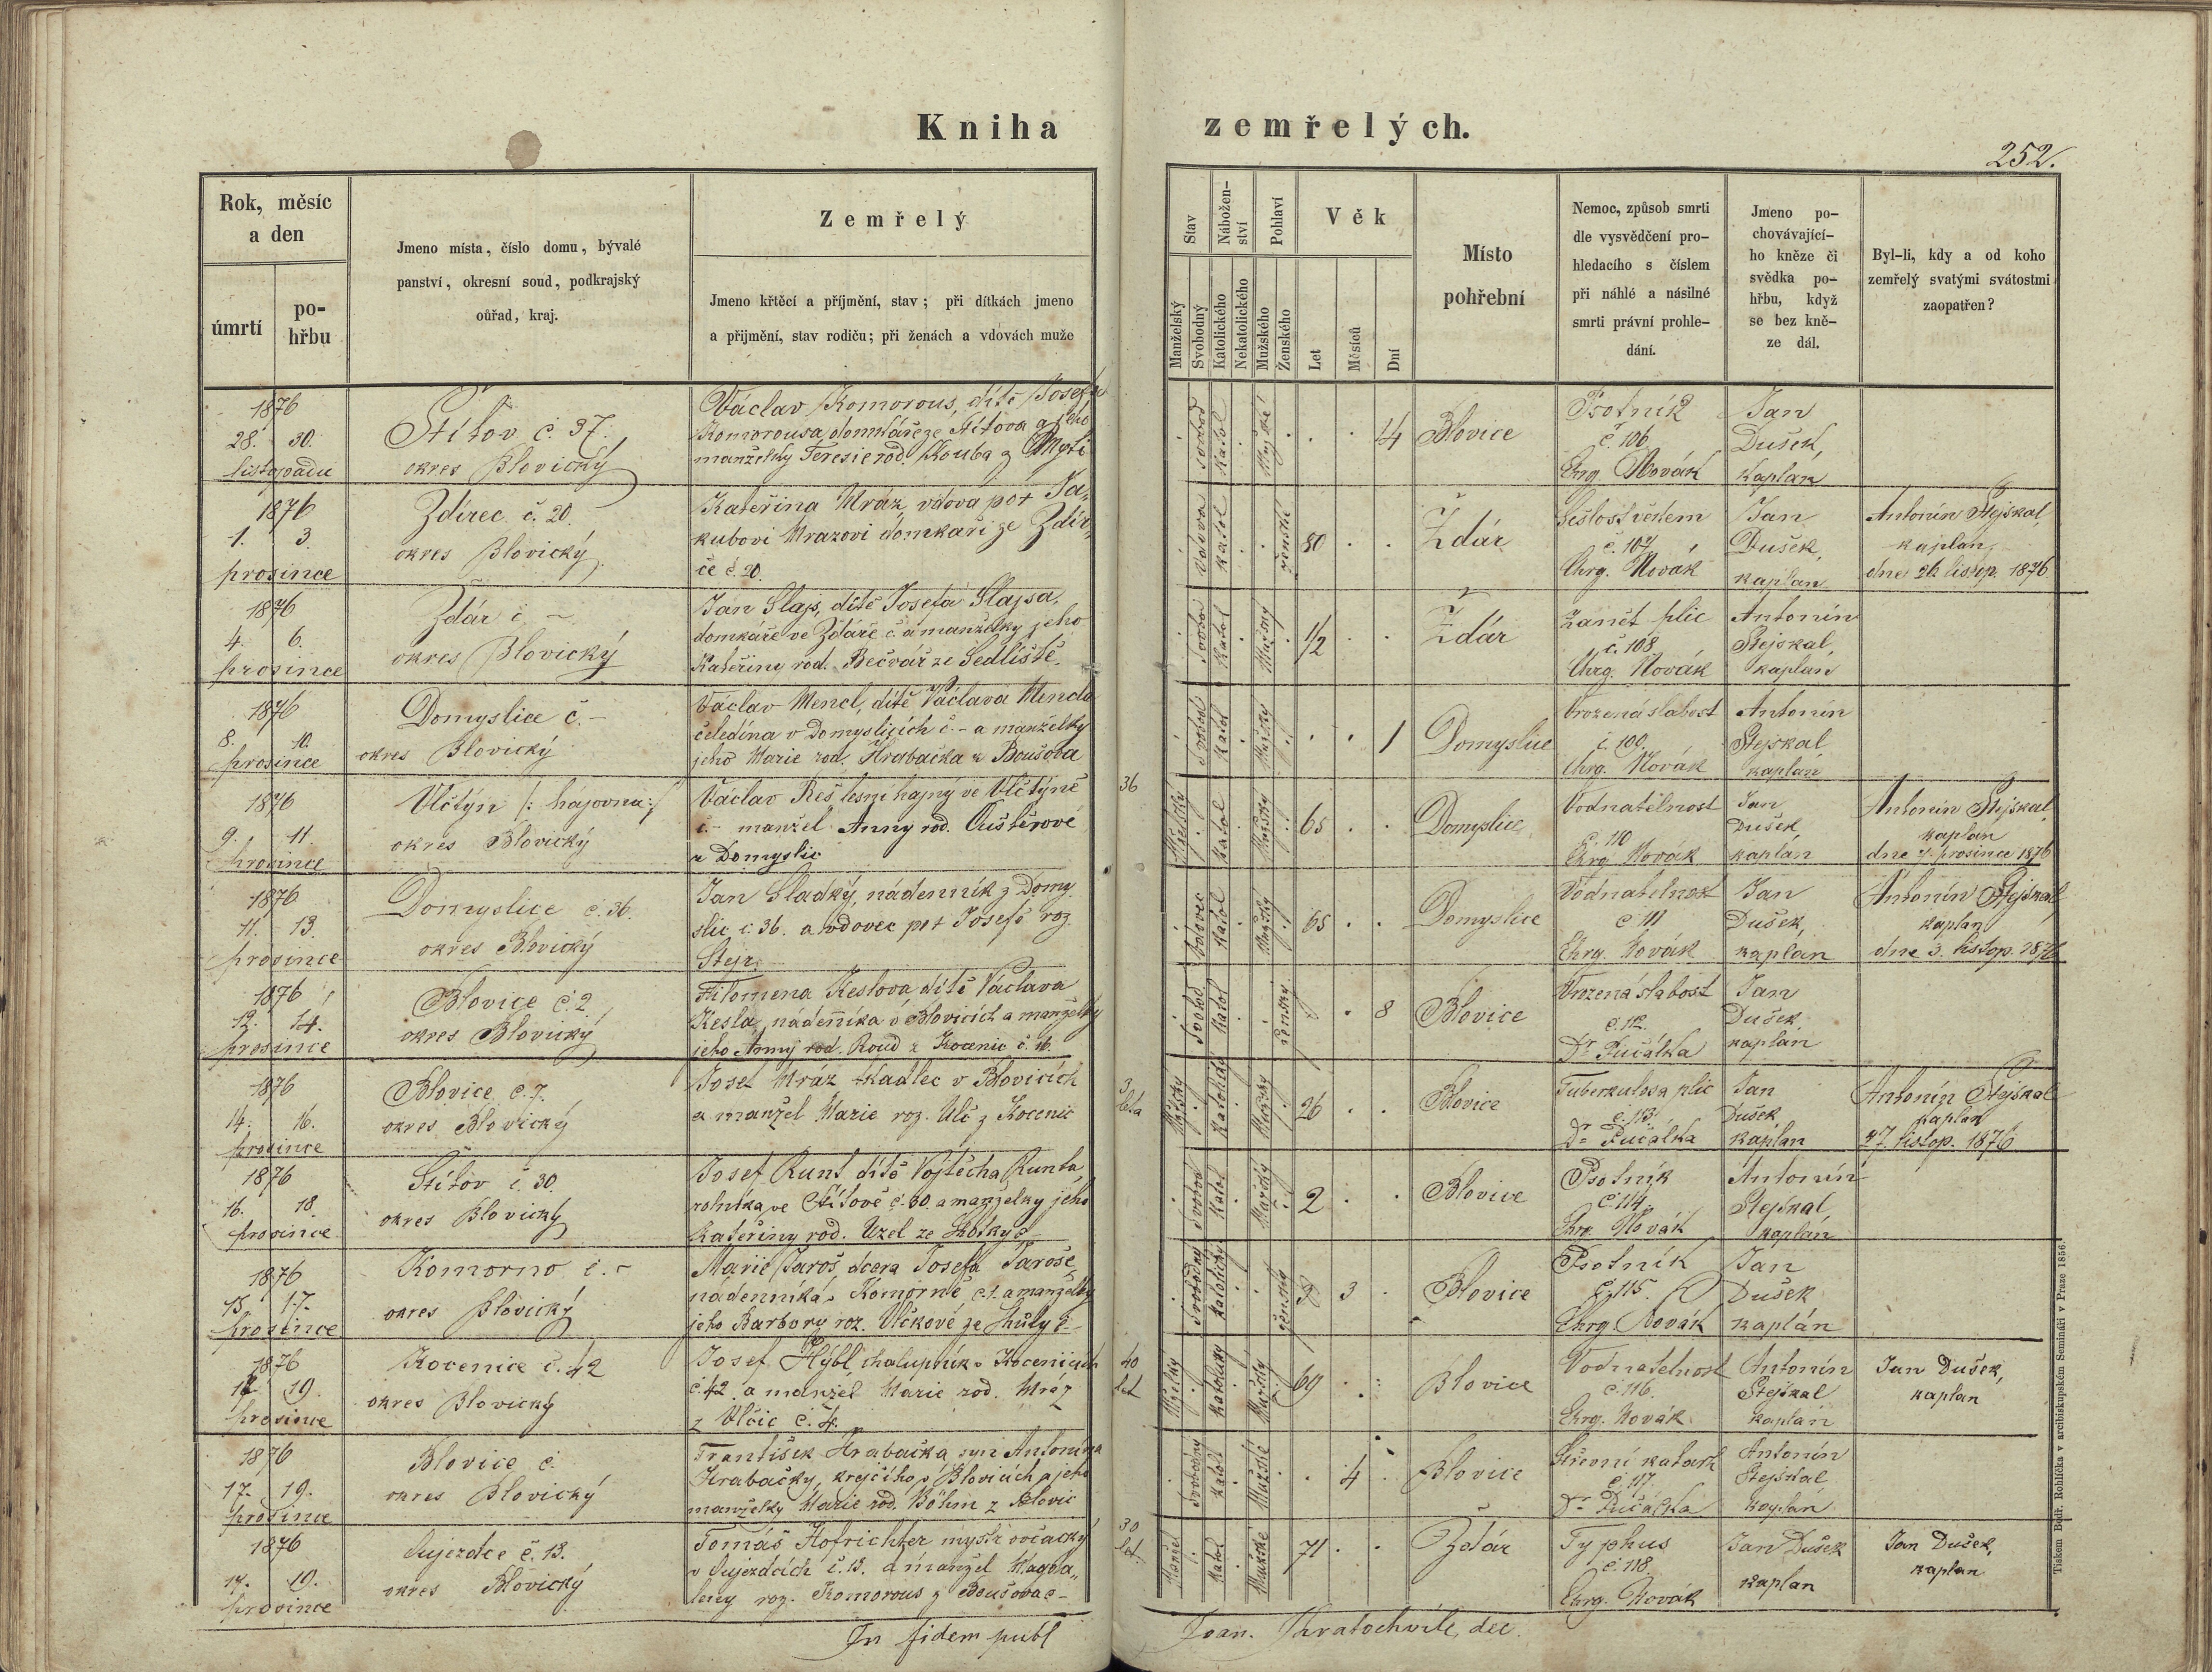 Kniha zemřelých.
252.
Rok, měsíc
a den
úmrtí
po-
hřbu
Jmeno místa, číslo domu, bývalé
panství, okresní soud, podkrajský
ouřad, kraj.
Zemřelý
Jmeno křtěcí a příjmění, stav; při dítkách jmeno
a přijmění, stav rodiču; při ženách a vdovách muže
Stav
Manželský
Svobodný
Nábožen-
ství
Katolického
Nekatolického
Pohlaví
Mužského
Ženského
Věk
Let
Měsíců
Dní
Místo
pohřební
Nemoc, způsob smrti
dle vysvědčení pro-
hledacího s číslem
při náhlé a násilné
smrti právní prohle-
dání.
Jmeno po-
chovávající-
ho kněze či
svědka po-
hřbu, když
se bez kně-
ze dál.
Byl-li, kdy a od koho
zemřelý svatými svátostmi
zaopatřen?
1876
28. 30.
listopadu
Štítov č. 37.
okres Blovický
Václav Komorous, dítě Josefa
Komorousa, domkáře ze Štítova a jeho
manželky Teresie rod. Kouba z
svobod
katol
14
Blovice
Psotník
č. 106
Chrg. Novák
Jan
Dušek,
kaplan
1876
1. 3.
prosince
Zdírec č. 20.
okres Blovický
Kateřina Mráz, vdova po + Ja-
kubovi Mrazovi domkáři ze Zdír-
če č. 20.
vdova
katol
ženské
80
Ždár
Sešlost věkem
č. 107
Chrg. Novák
Jan
Dušek,
kaplan
Antonín Stejskal,
kaplan
dne 26 listop. 1876
1876
4. 6.
prosince
Ždár č. –
okres Blovický
Jan Slajs, dítě Josefa Slajsa,
domkáře ve Ždáře č. a manželky jeho
Kateřiny rod. Bečvář ze Sedliště.
svobod
katol
Mužský
1/2
Ždár
Zanět plic
č. 108
Chrg. Novák
Antonín
Stejskal,
kaplan
1876
8. 10.
prosince
Domyslice č. –
okres Blovický
Václav Mencl, dítě Václava Mencla
čeledína v Domyslicích č. – a manželky
jeho Marie rod. Hrabačka z Boušova
svobod
katol
Mužský
1
Domyslice
Vrozená slabost
č. 109.
Chrg. Novák
Antonín
Stejskal
kaplan
1876
9. 11.
prosince
Vlčtýn /: hájovna :/
okres Blovický
Václav Reš lesní hajný ve Vlčtýně
č. – manžel Anny rod.
z Domyslic
36
katol
Mužský
65
Domyslice
Vodnatelnost
č. 110
Chrg Novák
Jan
Dušek,
kaplan
Antonín Stejskal,
kaplan
dne 7. prosince 1876
1876
11. 13.
prosince
Domyslice č. 36.
okres Blovický
Jan Sladký, nádenník z Domy-
slic č. 36. a vdovec po + Josefě roz.
Stejr.
vdovec
katol
Mužský
65
Domyslice
Vodnatelnost
č. 111
Chrg. Novák
Jan
Dušek,
kaplan
Antonín Stejskal,
kaplan
dne 3. listop. 1876
1876
12. 14.
prosince
Blovice č. 2.
okres Blovický
Filomena Keslova dítě Václava
Kesla, nádenníka v Blovicích a manželky
jeho Anny rod. Roud z Kocenic č. 16.
svobod
katol
ženský
8
Blovice
Vrozená slabost
č. 112.
Dr Pučálka
Jan
Dušek
kaplan
1876
14. 16.
prosince
Blovice č. 7.
okres Blovický
Josef Mráz tkadlec v Blovicích
a manžel Marie roz. Ulč z Kocenic
3
léta
Mužský
26
Blovice
Tuberkulosa plic
č. 113.
Dr Pučálka
Jan
Dušek
kaplan
Antonín Stejskal
kaplan
27. listop. 1876
1876
16. 18.
prosince
Štítov č. 30.
okres Blovický
Josef Runt, dítě Vojtěcha Runta,
rolníka ve Štítově č. 30. a manželky jeho
Kateřiny rod. Uzel ze
svobod
katol
Mužský
2
Blovice
Psotník
č. 114
Chrg. Novák
Antonín
Stejskal,
kaplan
1876
15. 17.
prosince
Komorno č. –
okres Blovický
Marie Jaroš dcera Josefa Jaroše,
nádenníka v Komorně č. 1. a manželky
jeho Barbory roz. Vlčkové ze
svobodný
katolický
ženský
3
Blovice
Psotník
č. 115.
Chrg. Novák
Jan
Dušek
kaplán
1876
19.
prosince
Kocenice č. 42
okres Blovický
Josef Hýbl chalupník v Kocenicích
č. 42. a manžel Marie rod. Mráz
z Vlčic č. 4.
40
let
katolický
Mužský
69
Blovice
Vodnatelnost
č. 116.
Chrg. Novák
Antonín
Stejskal
kaplan
Jan Dušek,
kaplan
1876
17. 19.
prosince
Blovice č.
okres Blovický
František Hrabačka, syn Antonína
Hrabačky, krejčího v Blovicích a jeho
manželky Marie rod. Böhm z Blovic
svobodný
katol
Mužské
4
Blovice
Střevní katarh
č. 117.
Dr Pučálka
Antonín
Stejskal
kaplan
1876
17. 19.
prosince
Oujezdce č. 13.
okres Blovický
Tomáš Hofrichter mystr ovčácký
v Oujezdcích č. 13. a manžel Magda-
leny roz. Komorous z Boušova č –
30
let.
katol
Mužské
71
Ždár
Typhus
č. 118.
Chrg. Novák
Jan Dušek
kaplan
Jan Dušek,
kaplan
In fidem publ
Joan. Kratochvíle, dec.
Tiskem Bedř. Rohlíčka v arcibiskupském Semináři v Praze 1856.